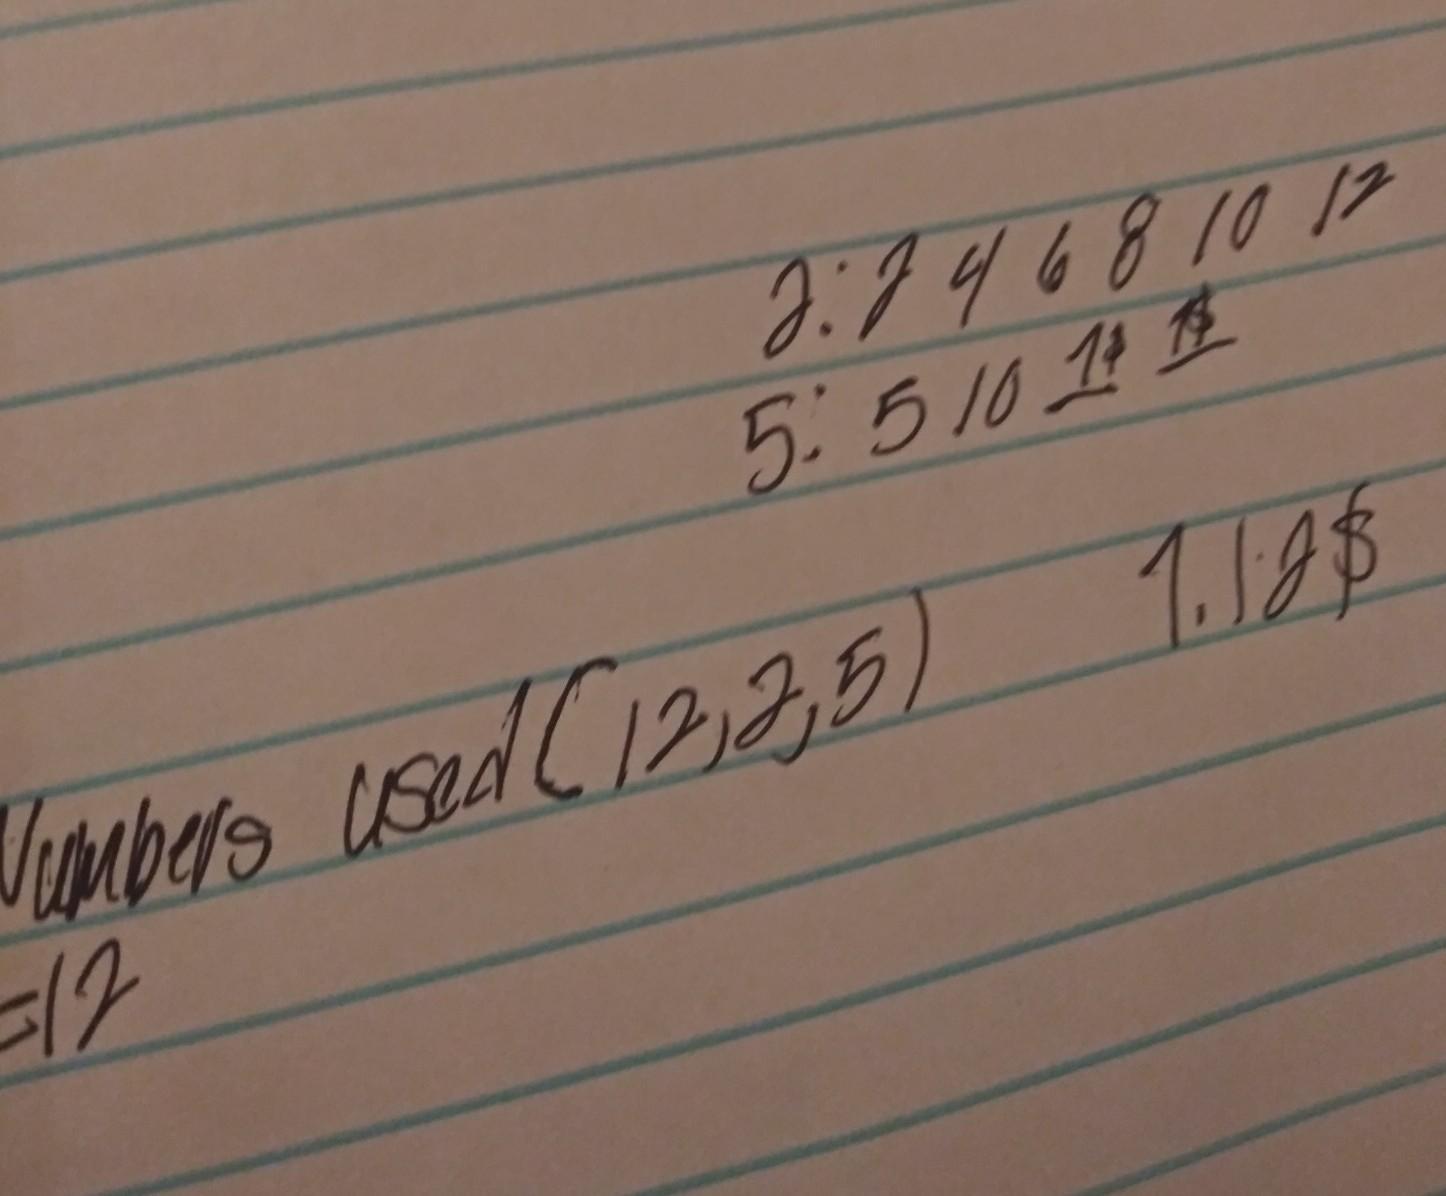 2: 2 4 6 8 10 12
5: 5 10 1$ 1$
1.12$
Numbers used (12,2,5)
=12